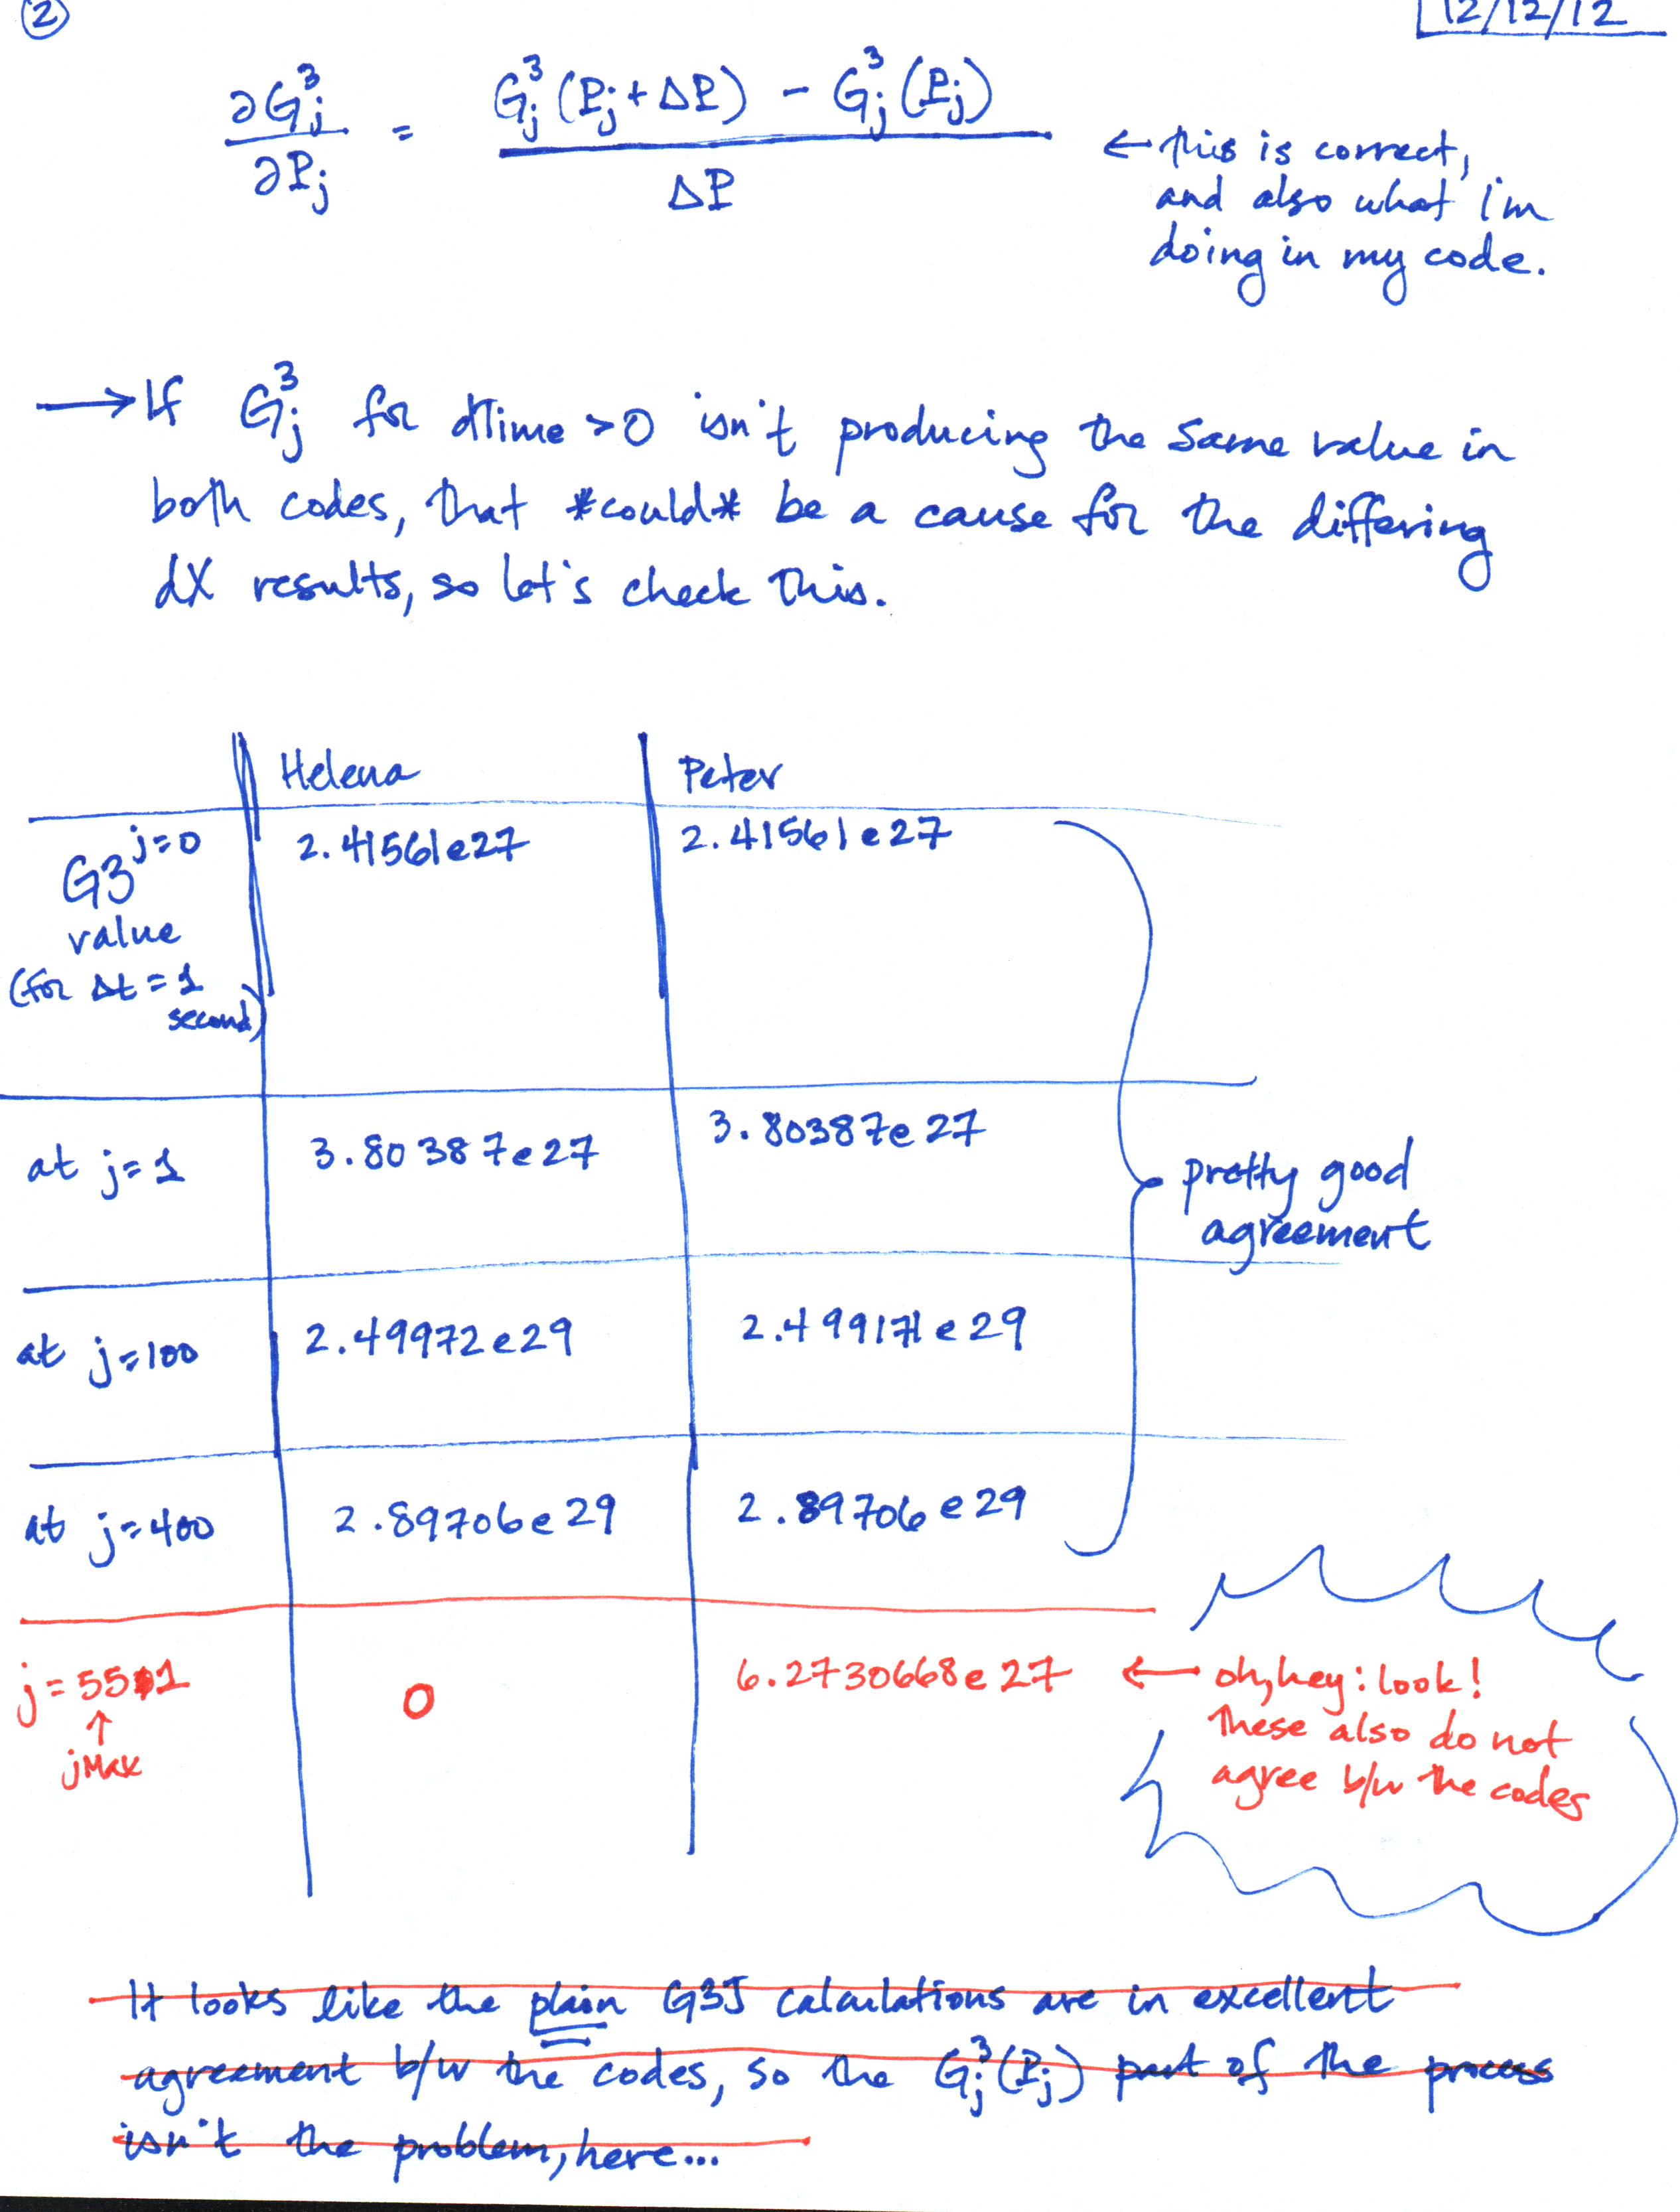 ②
12/12/12
∂G³j / ∂Pj = G³j (Pj + ΔP) - G³j (Pj) / ΔP
← this is correct,
and also what I'm
doing in my code.
→ If G³j for dTime > 0 isn't producing the same value in
both codes, that *could* be a cause for the differing
dX results, so let's check this.
Helena Peter
G3 j=0 2.41561e27 2.41561e27
value
(for Δt = 1
second)
at j=1 3.80387e27 3.80387e27
pretty good
agreement
at j=100 2.49972e29 2.499171e29
at j=400 2.89706e29 2.89706e29
j=5501 0 6.2730668e27 ← oh, hey: look!
↑
jMax
these also do not
agree b/w the codes
It looks like the plain G3J calculations are in excellent
agreement b/w the codes, so the G³j(Pj) part of the process
isn't the problem, here...